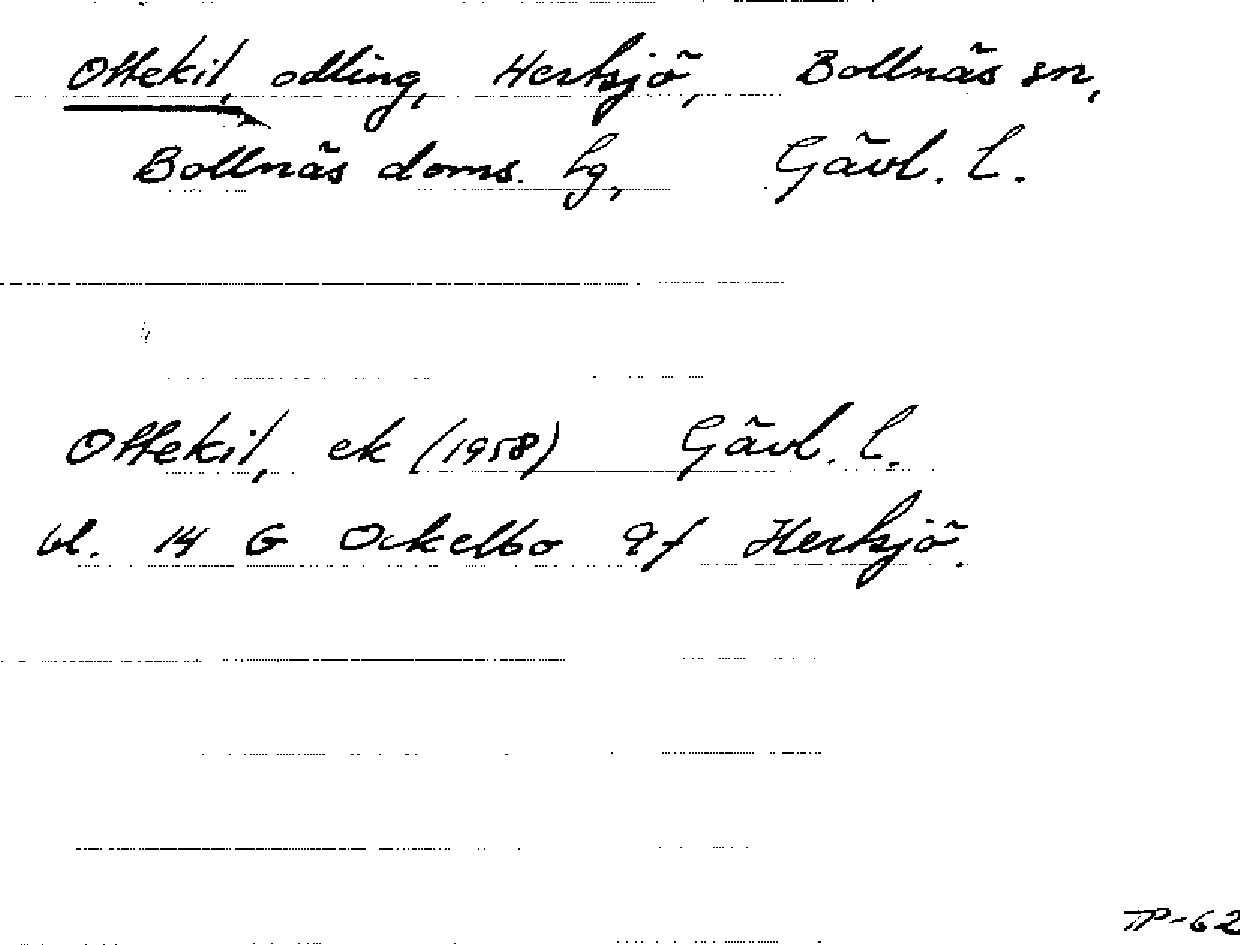 Ottekil, odling, Herksjö, Bollnäs sn,
Bollnäs doms. lg, Gävl. l.
Ottekil, ek (1958) Gävl. l.
bl. 14 G Ockelbo 9f Herksjö.
TP-62